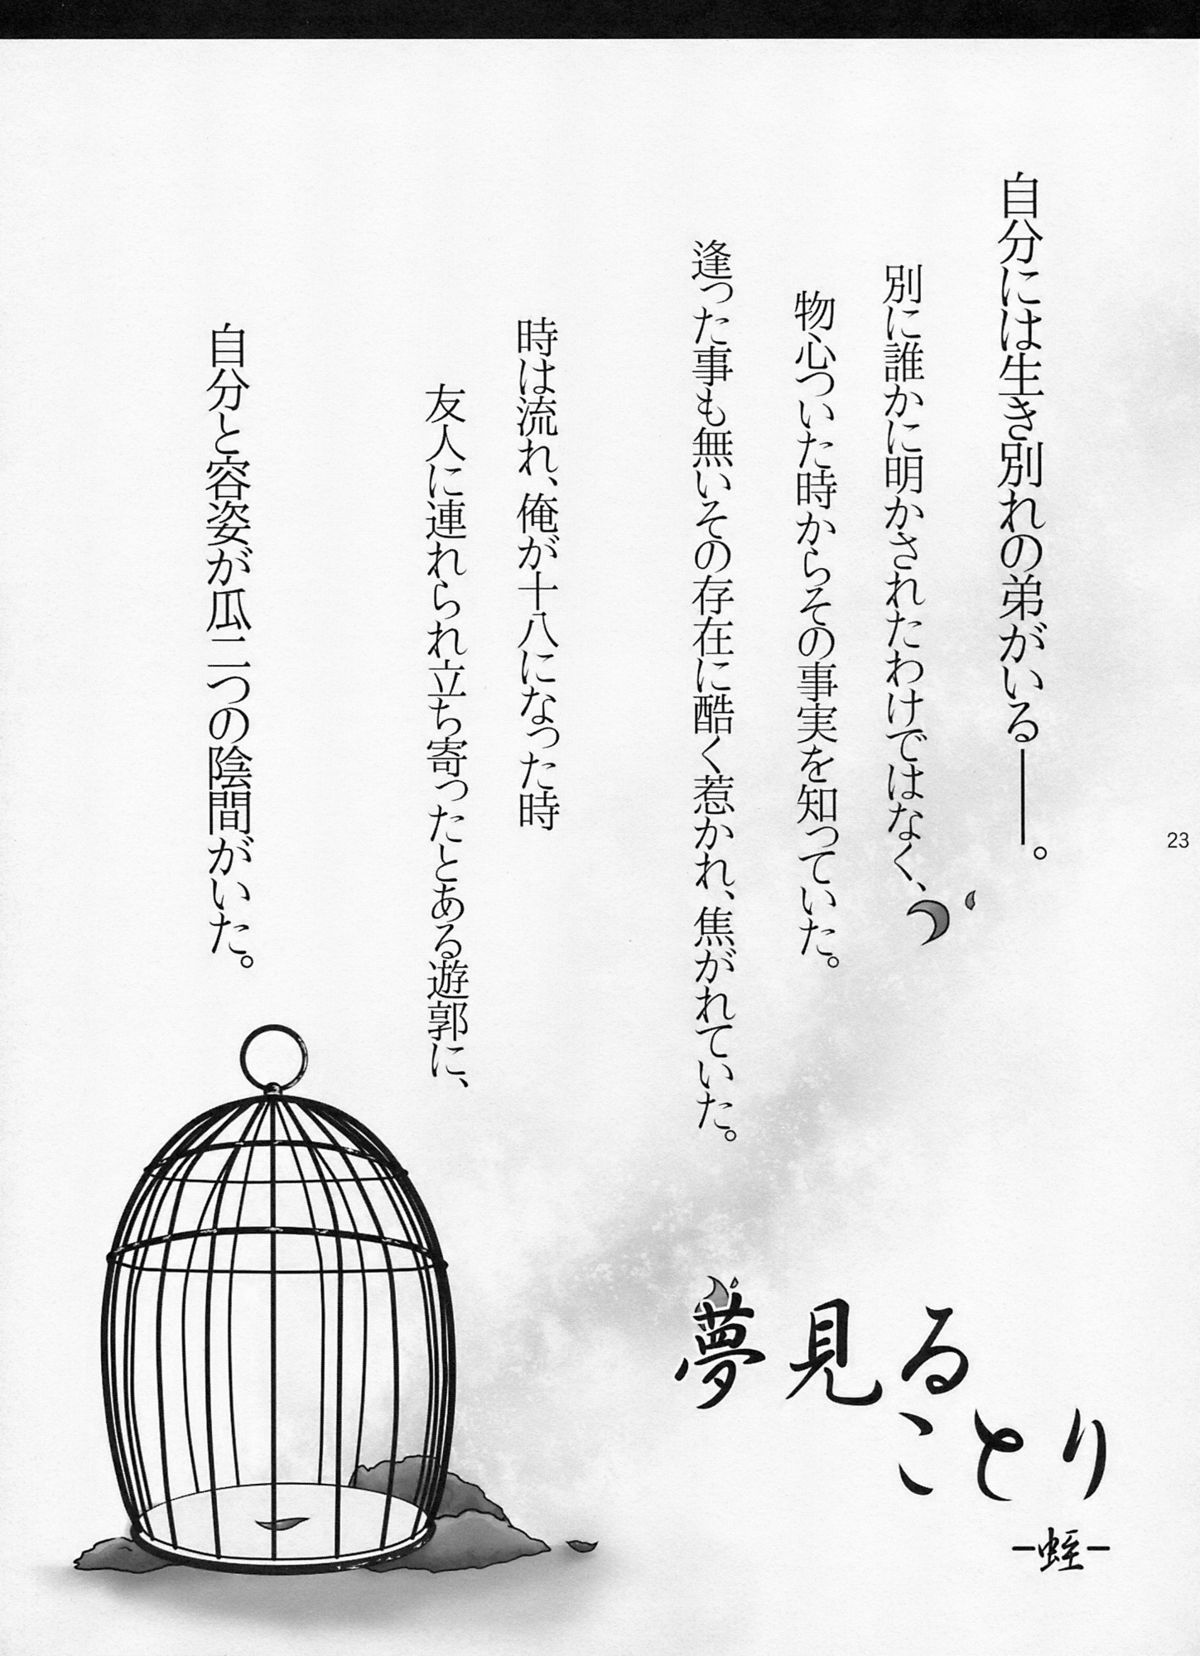 自分には生き別れの弟がいる――。
別に誰かに明かされたわけではなく、
物心ついた時からその事実を知っていた。
逢った事も無いその存在に酷く惹かれ、焦がれていた。
時は流れ、俺が十八になった時
友人に連れられ立ち寄ったとある遊郭に、
自分と容姿が瓜二つの陰間がいた。
23
夢見る
ことり
-蛭-